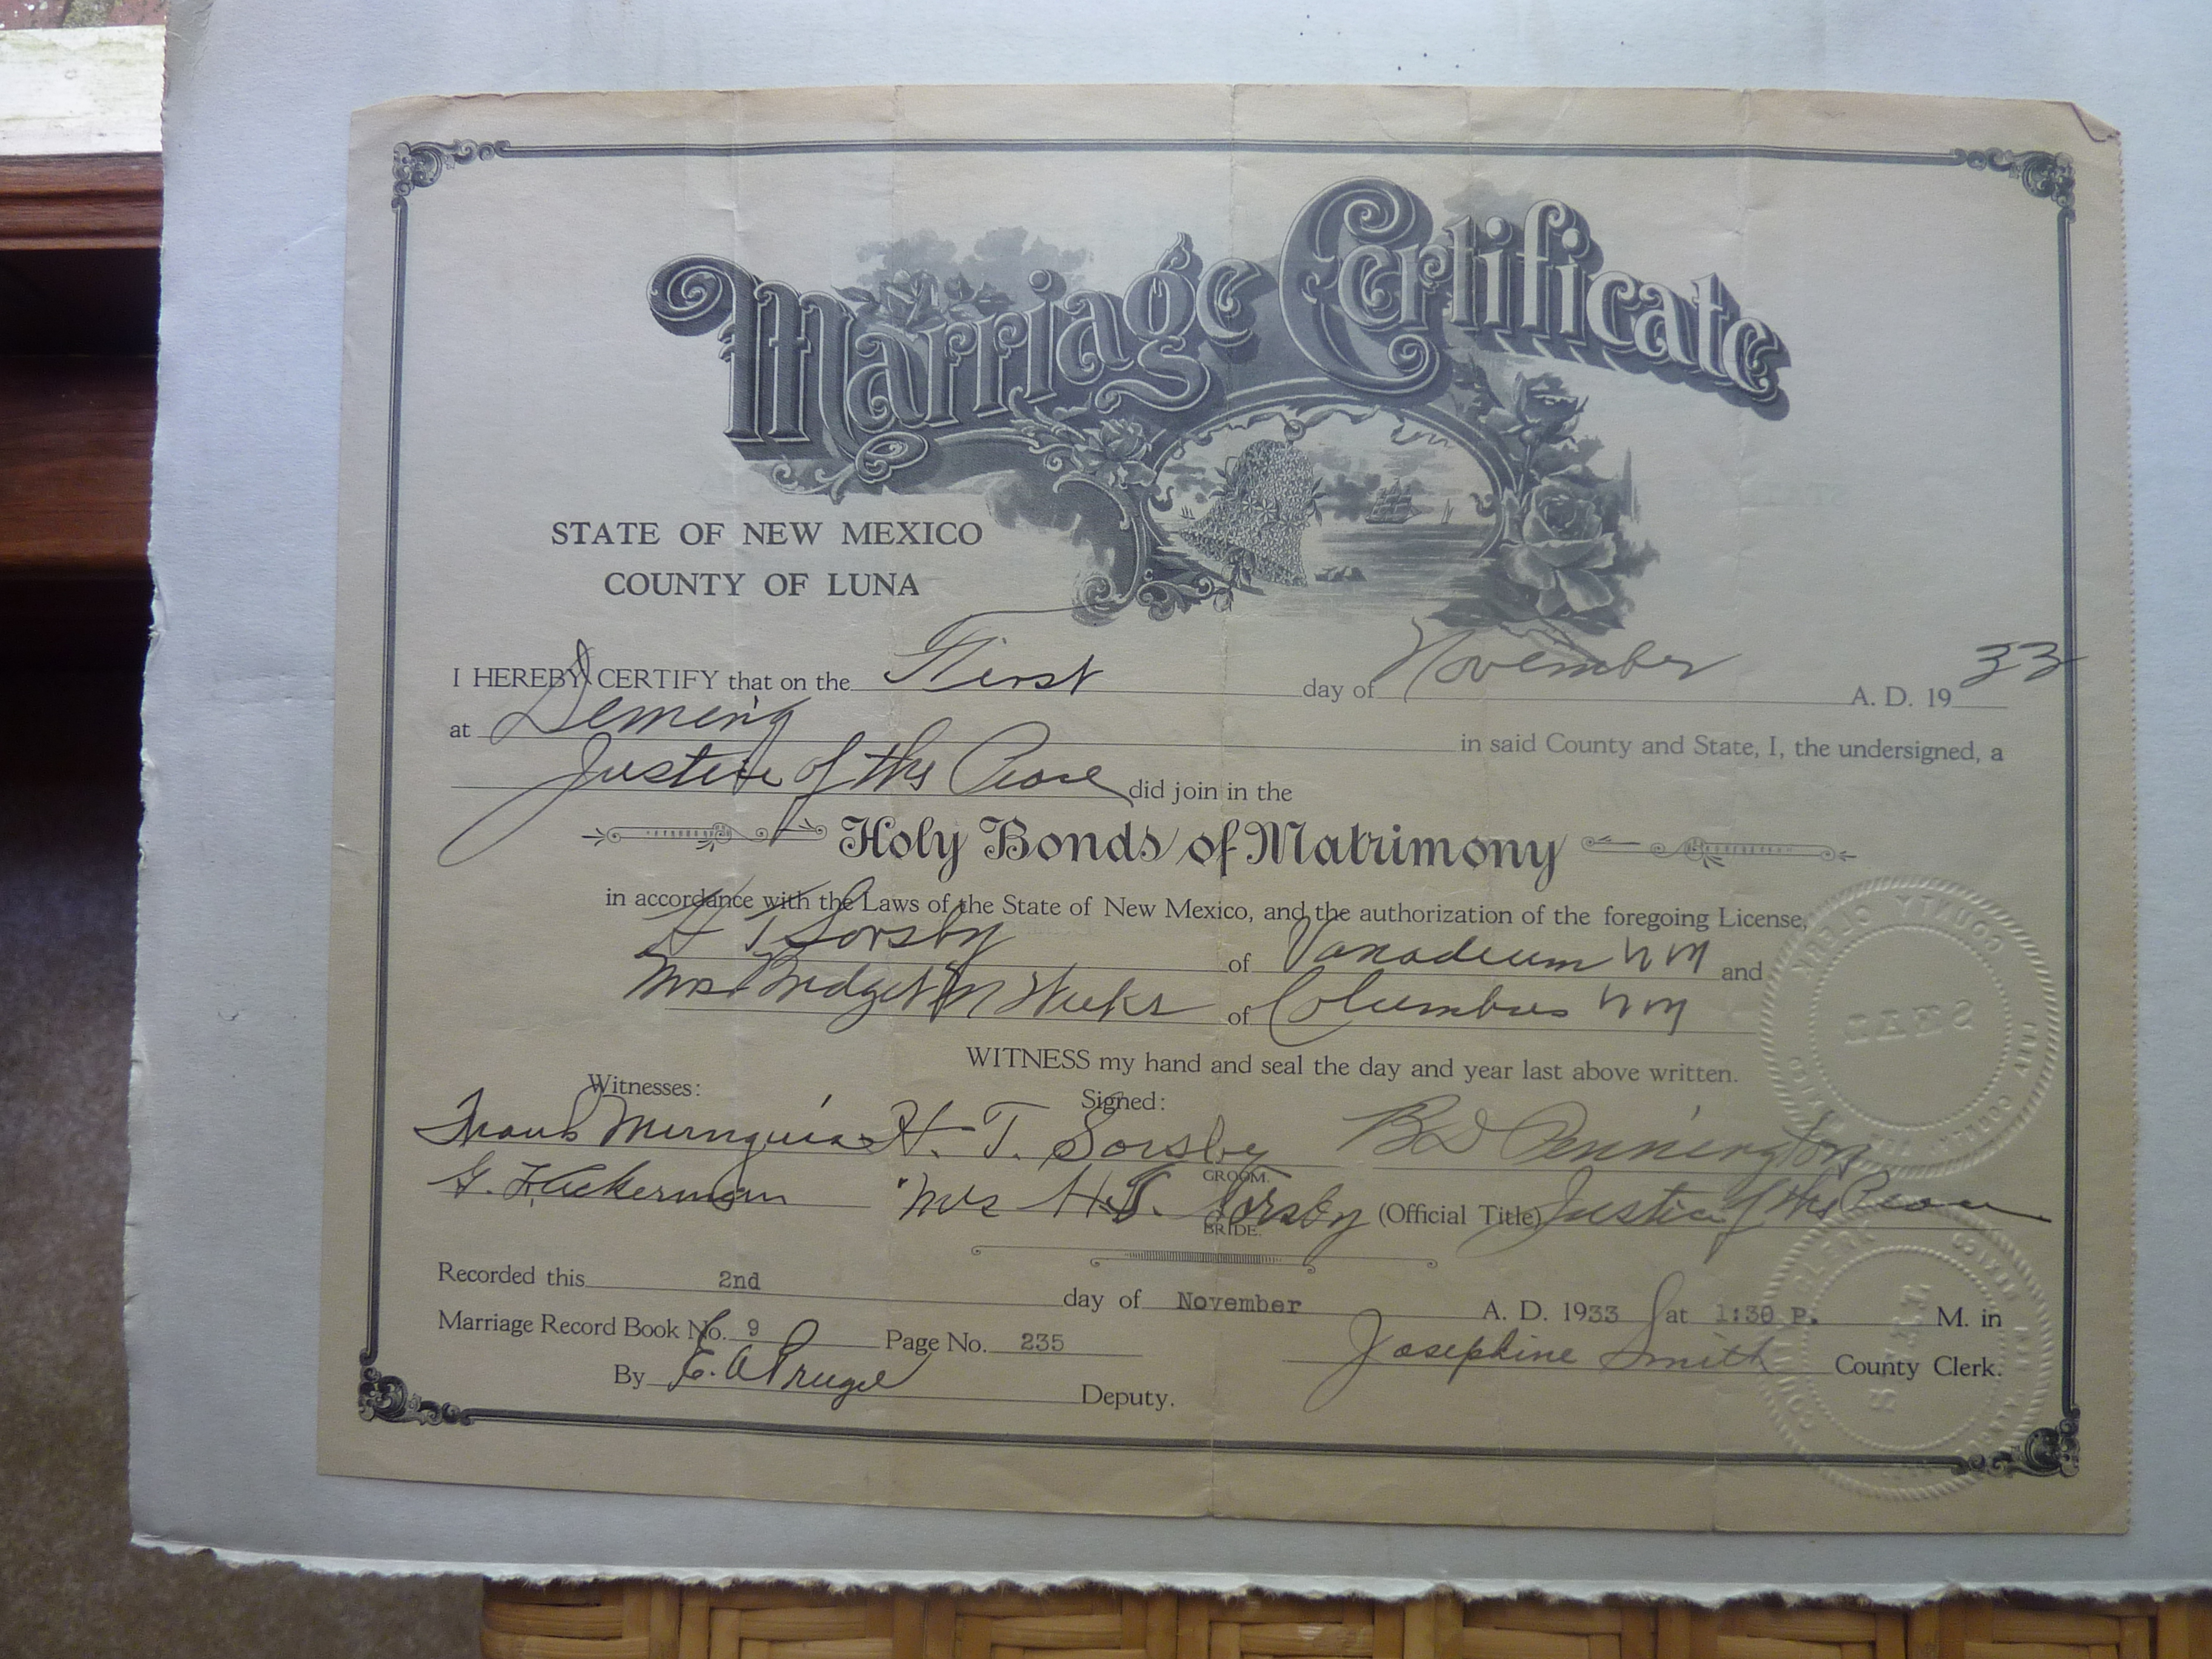 Marriage Certificate
STATE OF NEW MEXICO
COUNTY OF LUNA
I HEREBY CERTIFY that on the First day of November A. D. 19 33
at Deming in said County and State, I, the undersigned, a
Justice of the Peace did join in the
Holy Bonds of Matrimony
in accordance with the Laws of the State of New Mexico, and the authorization of the foregoing License,
H T Sorsby of Vanadium N M and
Mrs Bridget M Weeks of Columbus N M
WITNESS my hand and seal the day and year last above written.
Witnesses: Signed:
Frank H. T. Sorsby B D Pennington
GROOM.
G. Mrs H. T. Sorsby (Official Title) Justice of the Peace
BRIDE.
Recorded this 2nd day of November A. D. 1933 at 1:30 P. M. in
Marriage Record Book No. 9 Page No. 235 Josephine Smith County Clerk.
By Deputy.
COUNTY CLERK
SEAL